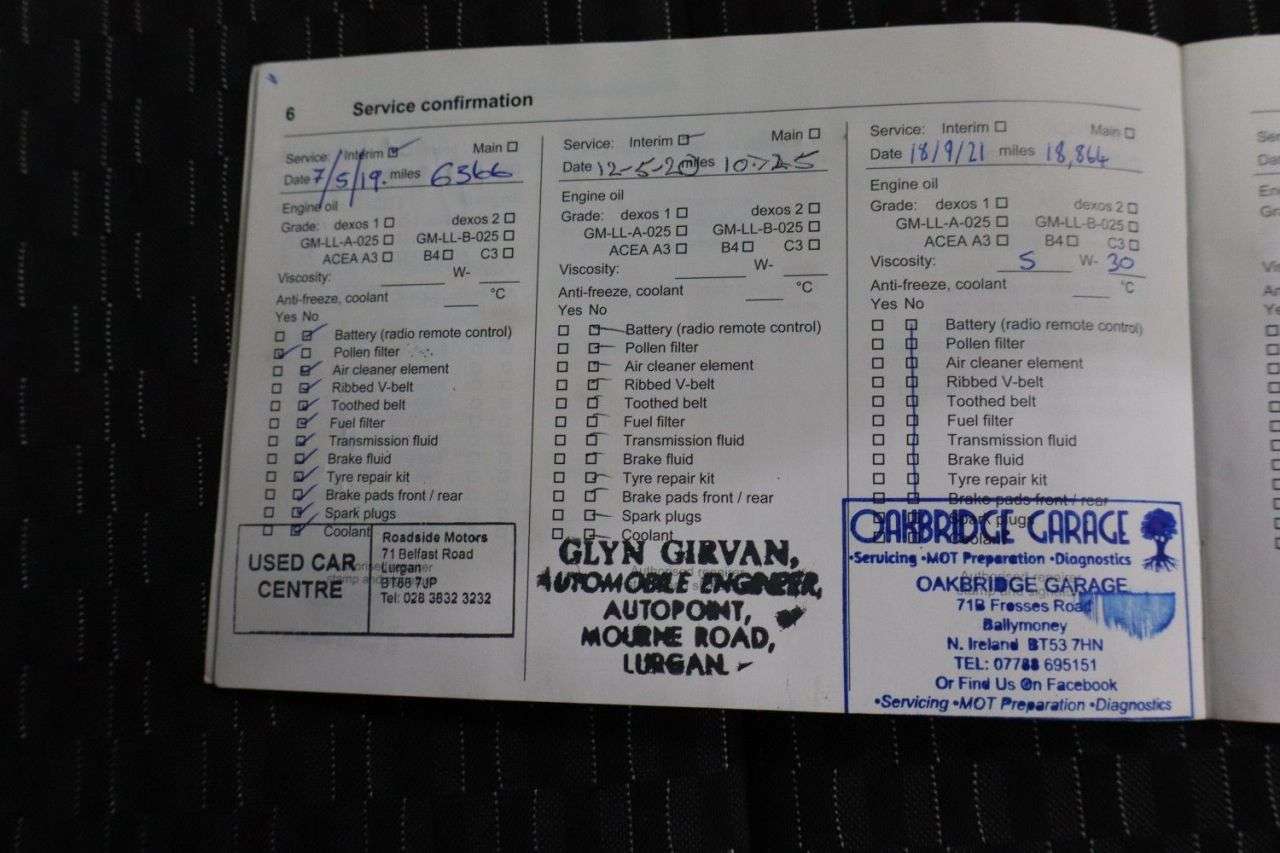 6 Service confirmation
Service: Interim Main
Date 7/5/19. miles 6366
Engine oil
Grade: dexos 1 dexos 2
GM-LL-A-025 GM-LL-B-025
ACEA A3 B4 C3
Viscosity: W-
Anti-freeze, coolant °C
Yes No
Battery (radio remote control)
Pollen filter
Air cleaner element
Ribbed V-belt
Toothed belt
Fuel filter
Transmission fluid
Brake fluid
Tyre repair kit
Brake pads front / rear
Spark plugs
Coolant
USED CAR
CENTRE
Roadside Motors
71 Belfast Road
Lurgan
BT66 7JP
Tel: 028 3832 3232
Service: Interim Main
Date 12-5-20 miles
Engine oil
Grade: dexos 1 dexos 2
GM-LL-A-025 GM-LL-B-025
ACEA A3 B4 C3
Viscosity: W-
Anti-freeze, coolant °C
Yes No
Battery (radio remote control)
Pollen filter
Air cleaner element
Ribbed V-belt
Toothed belt
Fuel filter
Transmission fluid
Brake fluid
Tyre repair kit
Brake pads front / rear
Spark plugs
Coolant
GLYN GIRVAN,
AUTOMOBILE ENGINEER,
AUTOPOINT,
MOURNE ROAD,
LURGAN
Service: Interim Main
Date 18/9/21 miles 18,864
Engine oil
Grade: dexos 1 dexos 2
GM-LL-A-025 GM-LL-B-025
ACEA A3 B4 C3
Viscosity: 5 W- 30
Anti-freeze, coolant °C
Yes No
Battery (radio remote control)
Pollen filter
Air cleaner element
Ribbed V-belt
Toothed belt
Fuel filter
Transmission fluid
Brake fluid
Tyre repair kit
Brake pads front / rear
Spark plugs
OAKBRIDGE GARAGE
•Servicing •MOT Preparation •Diagnostics
OAKBRIDGE GARAGE
71B Frosses Road
Ballymoney
N. Ireland BT53 7HN
TEL: 07788 695151
Or Find Us On Facebook
•Servicing •MOT Preparation •Diagnostics